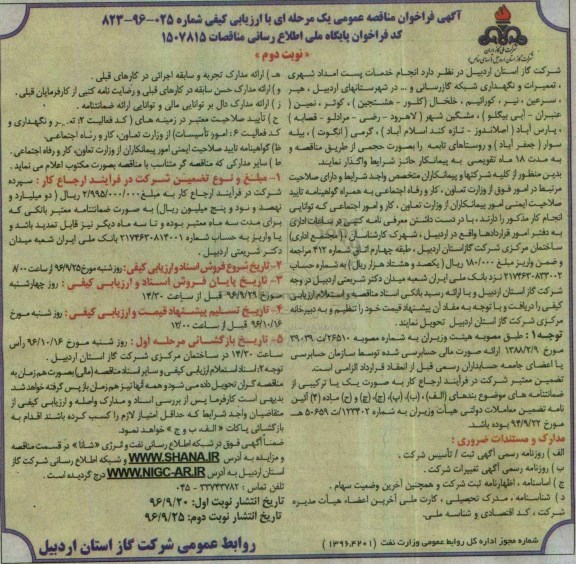 آگهی فراخوان مناقصه عمومی یک مرحله ای با ارزیابی کیفی شماره ۰۲۵-۹۶-۸۲۳
کد فراخوان پایگاه ملی اطلاع رسانی مناقصات ۱۵۰۷۸۱۵
« نوبت دوم »
شرکت گاز استان اردبیل در نظر دارد انجام خدمات پست امداد شهری
، تعمیرات و نگهداری شبکه گازرسانی و ... در شهرستانهای اردبیل، هیر
، سرعین، نیر، کورائیم، خلخال (کلور - هشتجین)، کوثر، نمین (
عنبران - آبی بیگلو)، مشگین شهر (لاهرود - رضی - مرادلو - قصابه)
، پارس آباد (اصلاندوز - تازه کند اسلام آباد)، گرمی (انگوت)، بیله
سوار (جعفر آباد) و روستاهای تابعه را بصورت حجمی از طریق مناقصه و
به مدت ۱۸ ماه تقویمی به پیمانکار حائز شرایط واگذار نمایند.
بدین منظور از کلیه شرکتها و پیمانکاران متخصص واجد شرایط و دارای صلاحیت
مرتبط در امور فوق از وزارت تعاون، کار و رفاه اجتماعی به همراه گواهینامه تایید
صلاحیت ایمنی امور پیمانکاران از وزارت تعاون، کار و امور اجتماعی که توانایی
انجام کار مذکور را دارند، با در دست داشتن معرفی نامه کتبی در ساعات اداری
به دفتر امور قراردادها واقع در اردبیل، شهرک کارشناسان (مجتمع اداری)
ساختمان مرکزی شرکت گاز استان اردبیل، طبقه چهارم اتاق شماره ۴۱۲ مراجعه
و ضمن واریز مبلغ ۱۸۰/۰۰۰ ریال (یکصد و هشتاد هزار ریال) به شماره حساب
۲۱۷۴۶۳۰۸۳۳۰۰۲ نزد بانک ملی ایران شعبه میدان دکتر شریعتی اردبیل در وجه
شرکت گاز استان اردبیل و با ارائه رسید بانکی اسناد مناقصه و استعلام ارزیابی
کیفی را دریافت و با توجه به مفاد آن پیشنهاد قیمت خود را تنظیم و به دبیرخانه
مرکزی شرکت گاز استان اردبیل تحویل نمایند.
توجه ۱: طبق مصوبه هیئت وزیران به شماره مصوبه ۲۶۵۱۰/ت ۳۹۰۳۹
مورخ ۱۳۸۸/۲/۹ ارائه صورت مالی حسابرسی شده توسط سازمان حسابرسی
یا اعضای جامعه حسابداران رسمی قبل از انعقاد قرارداد الزامی است.
تضمین معتبر شرکت در فرآیند ارجاع کار به صورت یک یا ترکیبی از
ضمانتنامه های موضوع بندهای (الف)، (ب)، (پ)، (ج)، (چ) و (ح) ماده (۴) آئین
نامه تضمین معاملات دولتی هیأت وزیران به شماره ۱۲۳۴۰۲/ت ۵۰۶۵۹ هـ
مورخ ۹۴/۹/۲۲ بوده باشد.
مدارک و مستندات ضروری:
الف) روزنامه رسمی آگهی ثبت / تأسیس شرکت.
ب) روزنامه رسمی آگهی تغییرات شرکت.
ج) اساسنامه، اظهارنامه ثبت شرکت و همچنین آخرین وضعیت سهام.
د) شناسنامه، مدرک تحصیلی، کارت ملی آخرین اعضاء هیأت مدیره
شرکت، کد اقتصادی و شناسه ملی.
هـ) ارائه مدارک تجربه و سابقه اجرائی در کارهای قبلی.
و) ارائه مدارک حسن سابقه در کارهای قبلی و رضایت نامه کتبی از کارفرمایان قبلی.
ز) ارائه مدارک دال بر توانایی مالی و توانایی ارائه ضمانتنامه.
ح) تأیید صلاحیت معتبر در زمینه های (کد فعالیت ۲: و نگهداری و
کد فعالیت ۶: امور تأسیسات) از وزارت تعاون، کار و رفاه اجتماعی.
ط) گواهینامه تایید صلاحیت ایمنی امور پیمانکاران از وزارت تعاون، کار و رفاه اجتماعی.
ظ) سایر مدارکی که مناقصه گر متناسب با مناقصه بصورت مکتوب اعلام می نماید.
۱- مبلغ و نوع تضمین شرکت در فرآیند ارجاع کار: سپرده
شرکت در فرآیند ارجاع کار به مبلغ ۲/۹۹۵/۰۰۰/۰۰۰ ریال (دو میلیارد و
نهصد و نود و پنج میلیون ریال) به صورت ضمانتنامه معتبر بانکی که
برای مدت سه ماه معتبر بوده و تا سه ماه دیگر نیز قابل تمدید باشد و
یا واریز به حساب شماره ۲۱۷۴۶۳۰۸۱۴۰۰۱ بانک ملی ایران شعبه میدان
دکتر شریعتی اردبیل.
۲- تاریخ شروع فروش اسناد و ارزیابی کیفی: روز شنبه مورخ ۹۶/۹/۲۵ از ساعت ۸/۰۰
۳- تاریخ پایان فروش اسناد و ارزیابی کیفی: روز چهارشنبه
مورخ ۹۶/۹/۲۹ قبل از ساعت ۱۴/۳۰
۴- تاریخ تسلیم پیشنهاد قیمت و ارزیابی کیفی: روز شنبه مورخ
۹۶/۱۰/۱۶ قبل از ساعت ۱۲/۰۰
۵- تاریخ بازگشائی مرحله اول: روز شنبه مورخ ۹۶/۱۰/۱۶ رأس
ساعت ۱۴/۳۰ در ساختمان مرکزی شرکت گاز استان اردبیل.
توجه ۲: اسناد استعلام ارزیابی کیفی و سایر اسناد مناقصه (مالی) بصورت همزمان به
مناقصه گران تحویل داده می شود و همه آنها نیز همزمان باز پس گرفته خواهد شد.
بدیهی است کارفرما پس از بررسی اسناد و مدارک واصله و ارزیابی کیفی از
متقاضیان واجد شرایط که حداقل امتیاز لازم را کسب کرده باشند اقدام به
بازگشائی پاکات «الف، ب و ج» خواهد نمود.
ضمناً آگهی فوق در شبکه اطلاع رسانی نفت و انرژی «شانا» در قسمت مناقصه
و مزایده به آدرس WWW.SHANA.IR و شبکه اطلاع رسانی شرکت گاز
استان اردبیل به آدرس WWW.NIGC-AR.IR درج گردیده است.
تلفن تماس: ۳۳۷۴۳۷۸۲ - ۰۴۵
تاریخ انتشار نوبت اول: ۹۶/۹/۲۰
تاریخ انتشار نوبت دوم: ۹۶/۹/۲۵
شماره مجوز اداره کل روابط عمومی وزارت نفت (۱۳۹۶.۴۲۰۱)
روابط عمومی شرکت گاز استان اردبیل